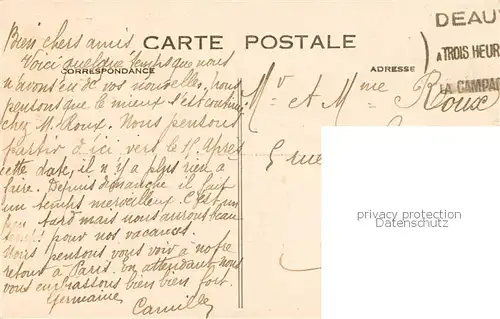 Bien chers amis,
CARTE POSTALE
Voici quelque temps que nous
n'avons eu de vos nouvelles, nous
CORRESPONDANCE
pensons que le mieux s'est continué
chez M. Roux. Nous pensons
partir d'ici vers le 15. Après
cette date, il n'y a plus rien à
faire. Depuis dimanche il fait
un temps merveilleux. C'est un
peu tard mais nous aurons beau
pour nos vacances.
Nous pensons vous voir à notre
retour à Paris. En attendant nous
vous embrassons bien bien fort.
Germaine
Camille
DEAU
A TROIS HEUR
LA CAMPA
ADRESSE
Mr et Mme Roux
5 rue
privacy protection
Datenschutz